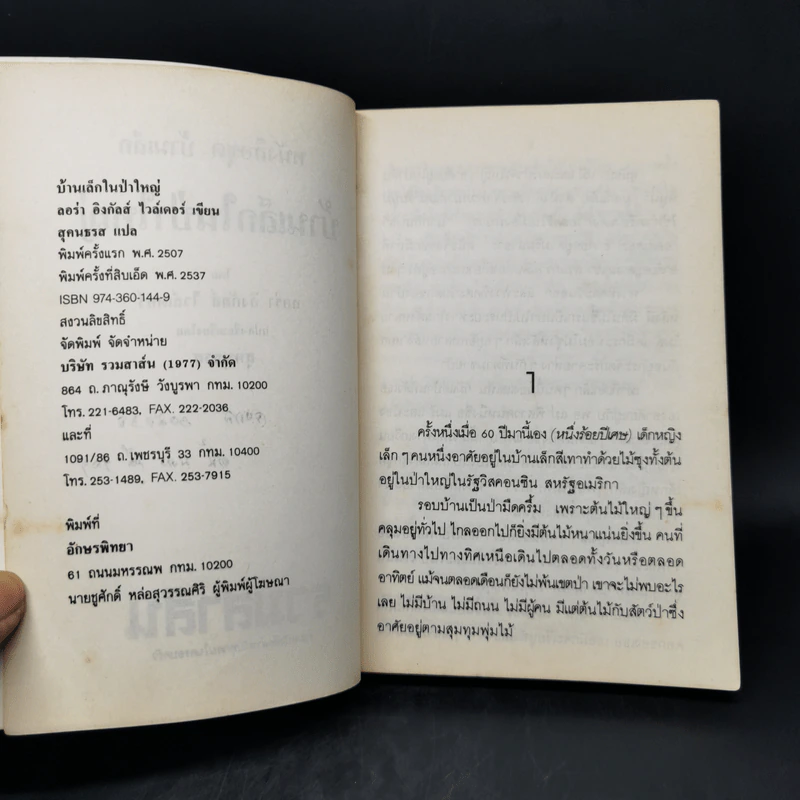 บ้านเล็กในป่าใหญ่
ลอร่า อิงกัลส์ ไวล์เดอร์ เขียน
สุคนธรส แปล
พิมพ์ครั้งแรก พ.ศ. 2507
พิมพ์ครั้งที่สิบเอ็ด พ.ศ. 2537
ISBN 974-360-144-9
สงวนลิขสิทธิ์
จัดพิมพ์ จัดจำหน่าย
บริษัท รวมสาส์น (1977) จำกัด
864 ถ.ภาณุรังษี วังบูรพา กทม. 10200
โทร. 221-6483, FAX. 222-2036
และที่
1091/86 ถ.เพชรบุรี 33 กทม. 10400
โทร. 253-1489, FAX. 253-7915
พิมพ์ที่
อักษรพิทยา
61 ถนนมหรรณพ กทม. 10200
นายชูศักดิ์ หล่อสุวรรณศิริ ผู้พิมพ์ผู้โฆษณา
1
ครั้งหนึ่งเมื่อ 60 ปีมานี้เอง (หนึ่งร้อยปีเศษ) เด็กหญิง
เล็ก ๆ คนหนึ่งอาศัยอยู่ในบ้านเล็กสีเทาทำด้วยไม้ซุงทั้งต้น
อยู่ในป่าใหญ่ในรัฐวิสคอนซิน สหรัฐอเมริกา
รอบบ้านเป็นป่ามืดครึ้ม เพราะต้นไม้ใหญ่ ๆ ขึ้น
คลุมอยู่ทั่วไป ไกลออกไปก็ยิ่งมีต้นไม้หนาแน่นยิ่งขึ้น คนที่
เดินทางไปทางทิศเหนือเดินไปตลอดทั้งวันหรือตลอด
อาทิตย์ แม้จนตลอดเดือนก็ยังไม่พ้นเขตป่า เขาจะไม่พบอะไร
เลย ไม่มีบ้าน ไม่มีถนน ไม่มีผู้คน มีแต่ต้นไม้กับสัตว์ป่าซึ่ง
อาศัยอยู่ตามสุมทุมพุ่มไม้